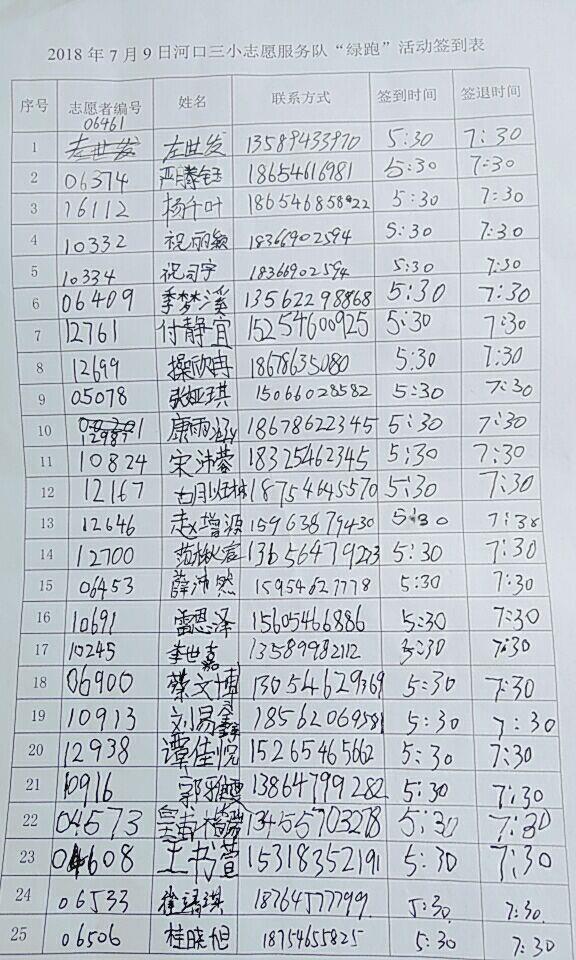 2018年7月9日河口三小志愿服务队“绿跑”活动签到表
序号 志愿者编号 姓名 联系方式 签到时间 签退时间
06461
1 左世发 左世发 13589433970 5:30 7:30
2 06374 18654616981 5:30 7:30
3 16112 杨千叶 18654685922 5:30 7:30
4 10332 祝丽颖 18366902594 5:30 7:30
5 10334 祝司宇 18366902594 5:30 7:30
6 06409 季梦溪 13562298868 5:30 7:30
7 12761 付静宜 15254600925 5:30 7:30
8 12699 操欣冉 18678635080 5:30 7:30
9 05078 张娅琪 15066028582 5:30 7:30
10 12987 康雨涵 18678622345 5:30 7:30
11 10824 宋沛蓉 18325462345 5:30 7:30
12 12167 18754645570 5:30 7:30
13 12646 赵增源 15963879430 5:30 7:30
14 12700 范楸宸 13656479223 5:30 7:30
15 06453 薛沛然 15954627778 5:30 7:30
16 10691 雷思泽 15605466886 5:30 7:30
17 10245 李世嘉 13589982112 5:30 7:30
18 06900 蔡文博 13054629369 5:30 7:30
19 10913 刘易鑫 18562069581 5:30 7:30
20 12938 谭佳悦 15265465662 5:30 7:30
21 10916 郭雅雯 13864799282 5:30 7:30
22 04573 13455703278 5:30 7:30
23 04608 王书萱 15318352191 5:30 7:30
24 06533 崔靖琪 18764577799 5:30 7:30
25 06506 桂晓旭 18754655825 5:30 7:30